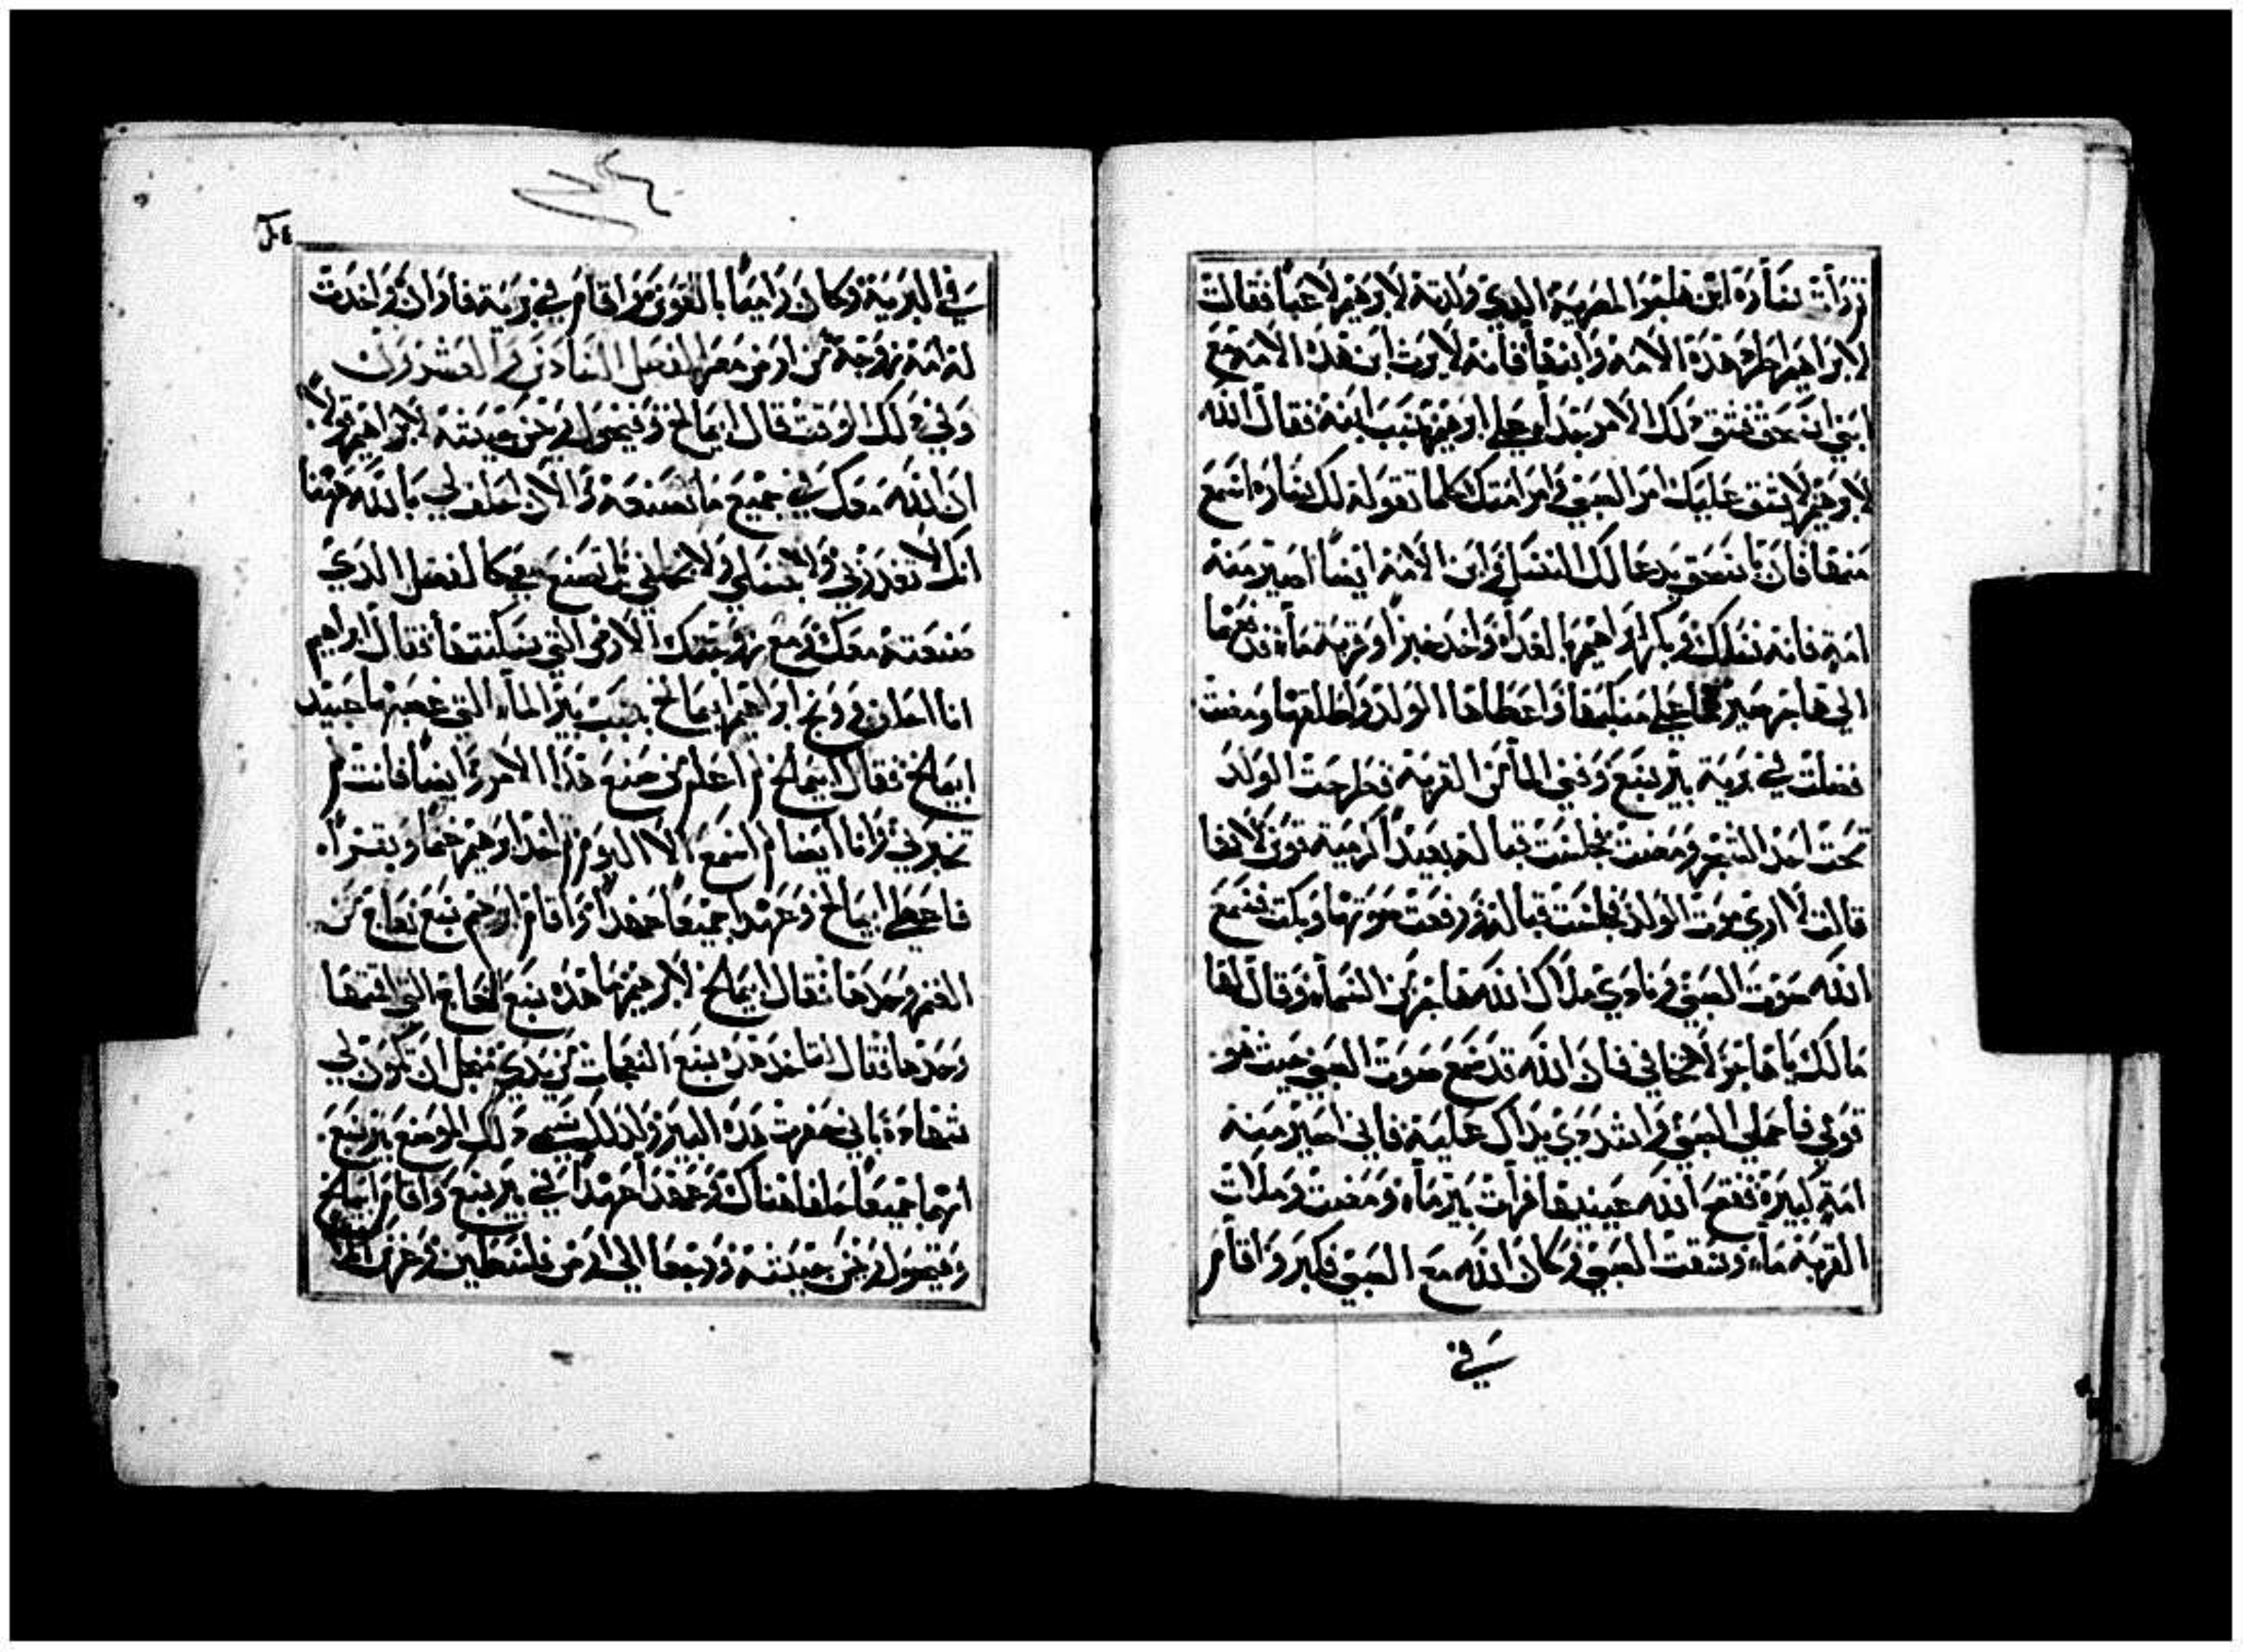 ورات ساره ابن هاجر المصرية الدي ولدته لابرهيم لاعبا فقالت
لابراهيم اطرد هذه الامة وابنها فانه لا يرث ابن هذه الامة مع
ابني اسحق فشق دلك الامر جدا علي ابرهيم بسبب ابنه فقال الله
لابرهيم لا يشق عليك امر الصبي وامر امتك كلما تقوله لك ساره اسمع
منها فان باسحق يدعا لك النسل وابن الامة ايضا اصير منه
امة فانه نسلك وبكر ابراهيم بالغداه واخد خبزا وقربة ماء فدفعها
الي هاجر علي منكبها واعطاها الولد واطلقها ومضت
فضلت في برية بير سبع وفني الما من القربه فطرحت الولد
تحت احد الشجر ومضت فجلست قبالته بعيدا كرمية قوس لانها
قالت لا اري موت الولد فجلست قبالته ورفعت صوتها وبكت فسمع
الله صوت الصبي ونادي ملاك الله هاجر من السماء وقال لها
مالك يا هاجر لا تخافي فان الله قد سمع صوت الصبي حيث هو
قومي فاحملي الصبي واشددي يداك عليه فاني اصير منه
امة كبيرة ففتح الله عينيها فرات بير ماء ومضت وملات
القربة ماء وسقت الصبي وكان الله مع الصبي فكبر واقام
في
في البرية وكان راميا بالقوس واقام في برية فاران واخدت
له امه زوجة من ارض مصر الفصل السادس والعشرون
وفي دلك الوقت قال ابيمالخ وفيخول وخن جيشه لابراهيم قايلا
ان الله معك في جميع ما تصنعه والان احلف لي بالله هاهنا
انك لا تغدرني ولا نسلي ولا بل تصنع معي كالفضل الدي
صنعته معك ومع الارض التي سكنتها فقال ابراهيم
انا احلف ووبخ ابراهيم ابيمالخ بسبب بير الماء التي غصبها عبيد
ابيمالخ فقال ابيمالخ لم اعلم من صنع هذا الامر وايضا فانت لم
تخبرني وانا ايضا لم اسمع الا اليوم فاخد ابرهيم غنما وبقرا
فاعطي ابيمالخ وعهدا جميعا عهدا واقام ابرهيم سبع نعاج من
الغنم وحدها فقال ابيمالخ لابرهيم ما هذه سبع النعاج التي اقمتها
وحدها فقال انما تاخد هذه سبع النعجات من يدي من اجل ان تكون لي
شهادة باني حفرت هذه البير ولدلك سمي دلك الموضع بير سبع
انهما جميعا حلفا هناك وعهدا عهدا في بير سبع وقام ابيمالخ
وفيخول وخن جيشه ورجعا الي ارض فلسطين وغرس